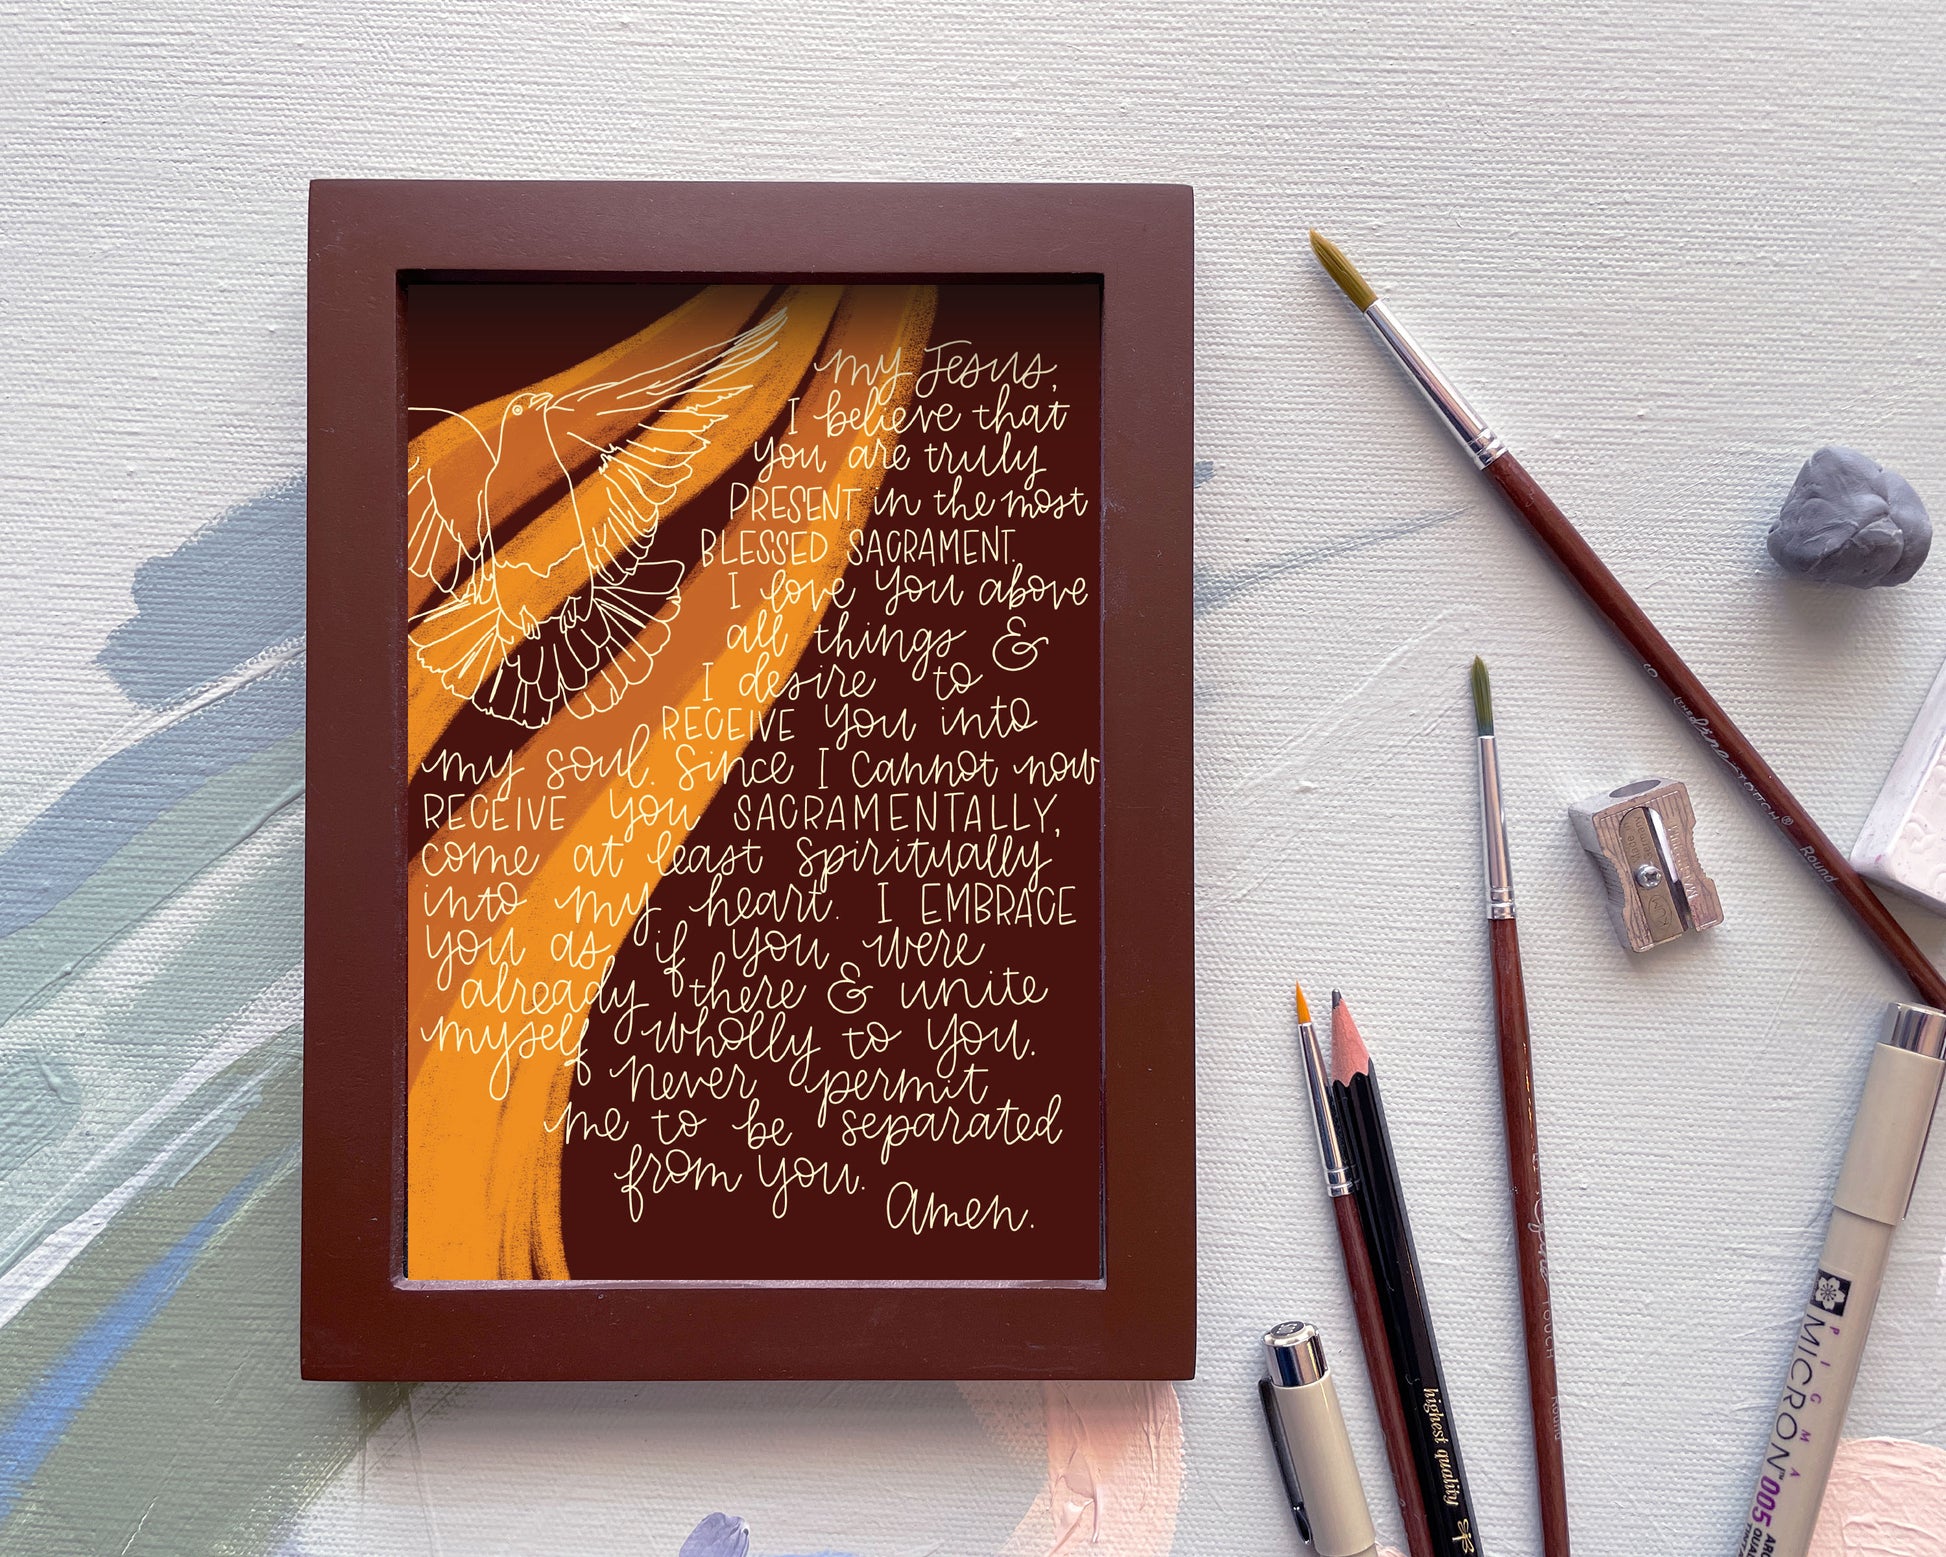 my Jesus,
I believe that
you are truly
PRESENT in the most
BLESSED SACRAMENT.
I love you above
all things &
I desire to
RECEIVE you into
my soul. Since I cannot now
RECEIVE you SACRAMENTALLY,
come at least spiritually
into my heart. I EMBRACE
you as if you were
already there & unite
myself wholly to you.
Never permit
me to be separated
from you.
Amen.
Round
TOUCH ROUND
highest quality
PIGMA
MICRON™ 005
05